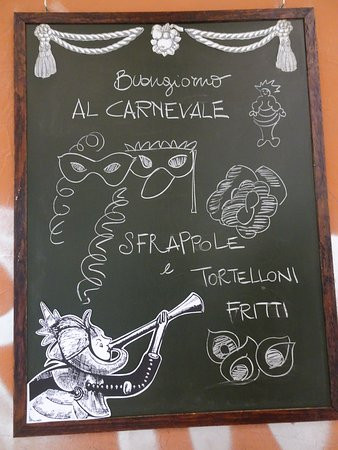 Buongiorno
AL CARNEVALE
SFRAPPOLE
e
TORTELLONI
FRITTI